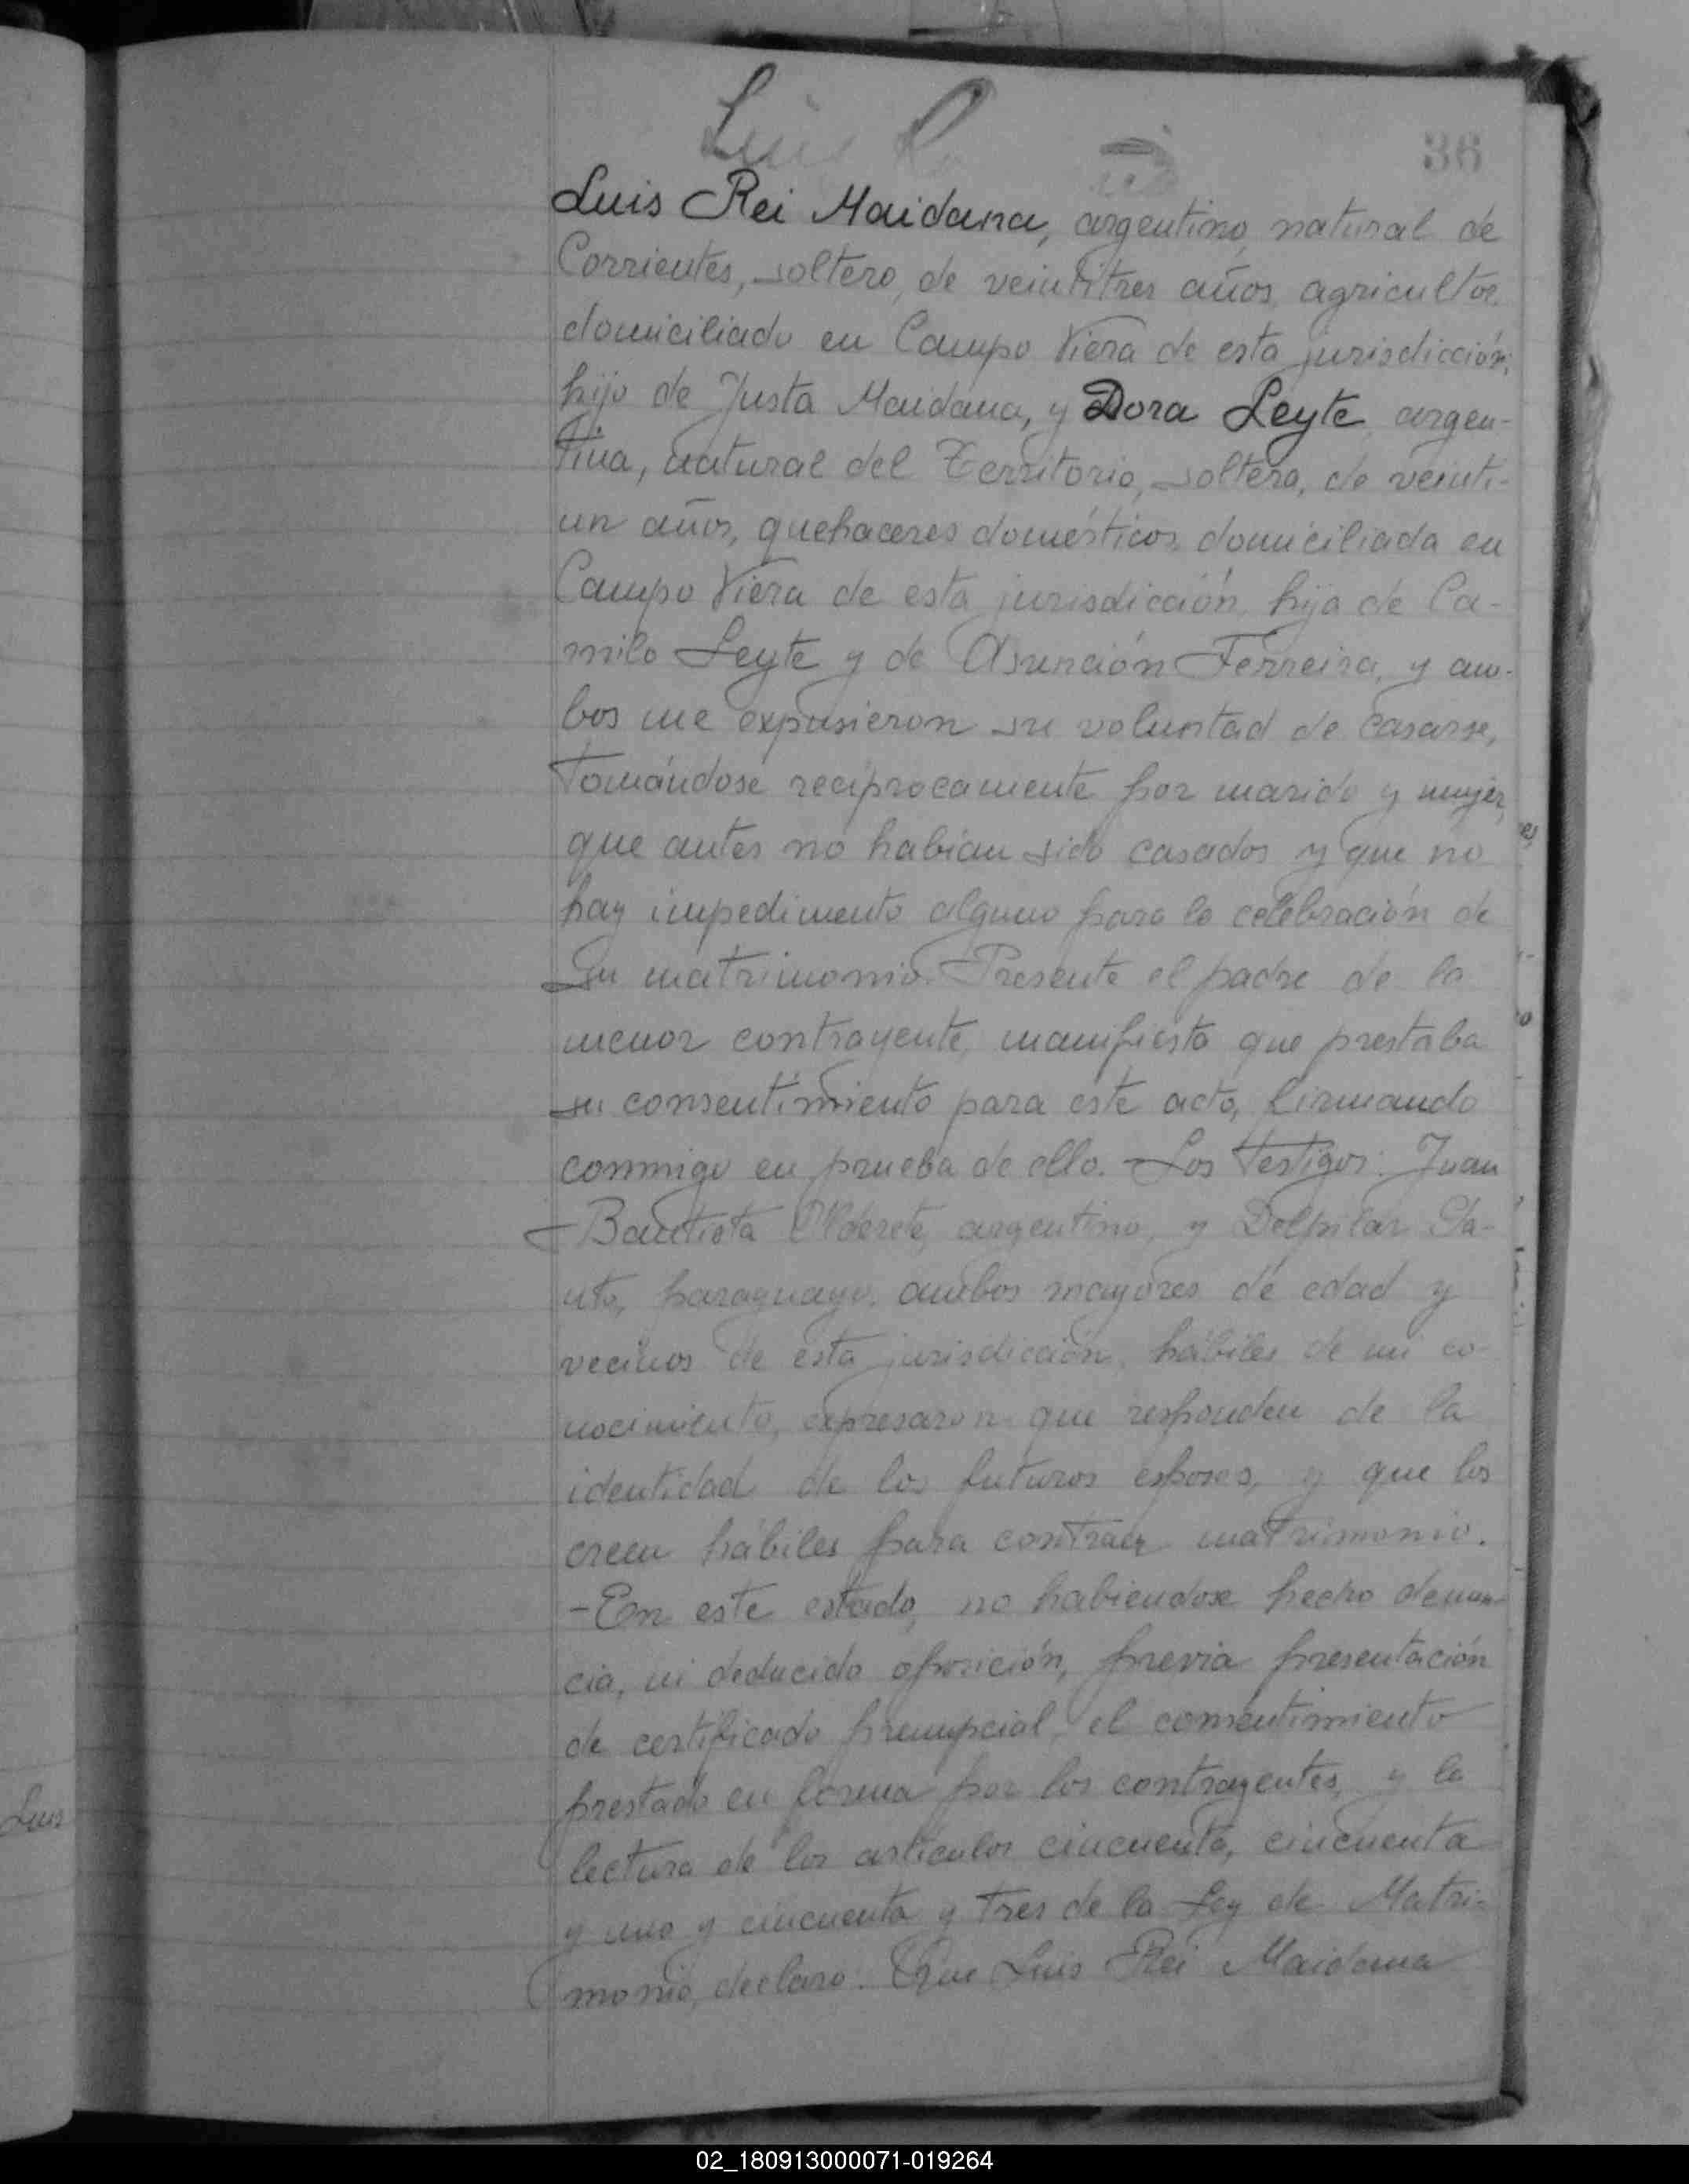 36
Luis Rei Maidana, argentino, natural de
Corrientes, soltero, de veintitres años, agricultor,
domiciliado en Campo Viera de esta jurisdicción,
hijo de Justa Maidana, y Dora Leyte, argen-
tina, natural del Territorio, soltera, de veinti-
un años, quehaceres domésticos, domiciliada en
Campo Viera de esta jurisdicción, hija de Ca-
milo Leyte y de Asunción Ferreira, y am-
bos me expusieron su voluntad de casarse,
tomándose recíprocamente por marido y mujer,
que antes no habían sido casados y que no
hay impedimento alguno para la celebración de
su matrimonio. Presente el padre de la
menor contrayente, manifiesta que prestaba
su consentimiento para este acto, firmando
conmigo en prueba de ello. Los testigos: Juan
Bautista Alderete, argentino, y Delpilar
paraguayo, ambos mayores de edad y
vecinos de esta jurisdicción, hábiles de mi co-
nocimiento, expresaron que responden de la
identidad de los futuros esposos, y que los
creen hábiles para contraer matrimonio.
-En este estado, no habiendose hecho denun-
cia, ni deducido oposición, previa presentación
de certificado prenupcial, el consentimiento
prestado en forma por los contrayentes, y la
lectura de los artículos cincuenta, cincuenta
y uno y cincuenta y tres de la Ley de Matri-
monio, declaro: Que Luis Rei Maidana
Luis
02_180913000071-019264